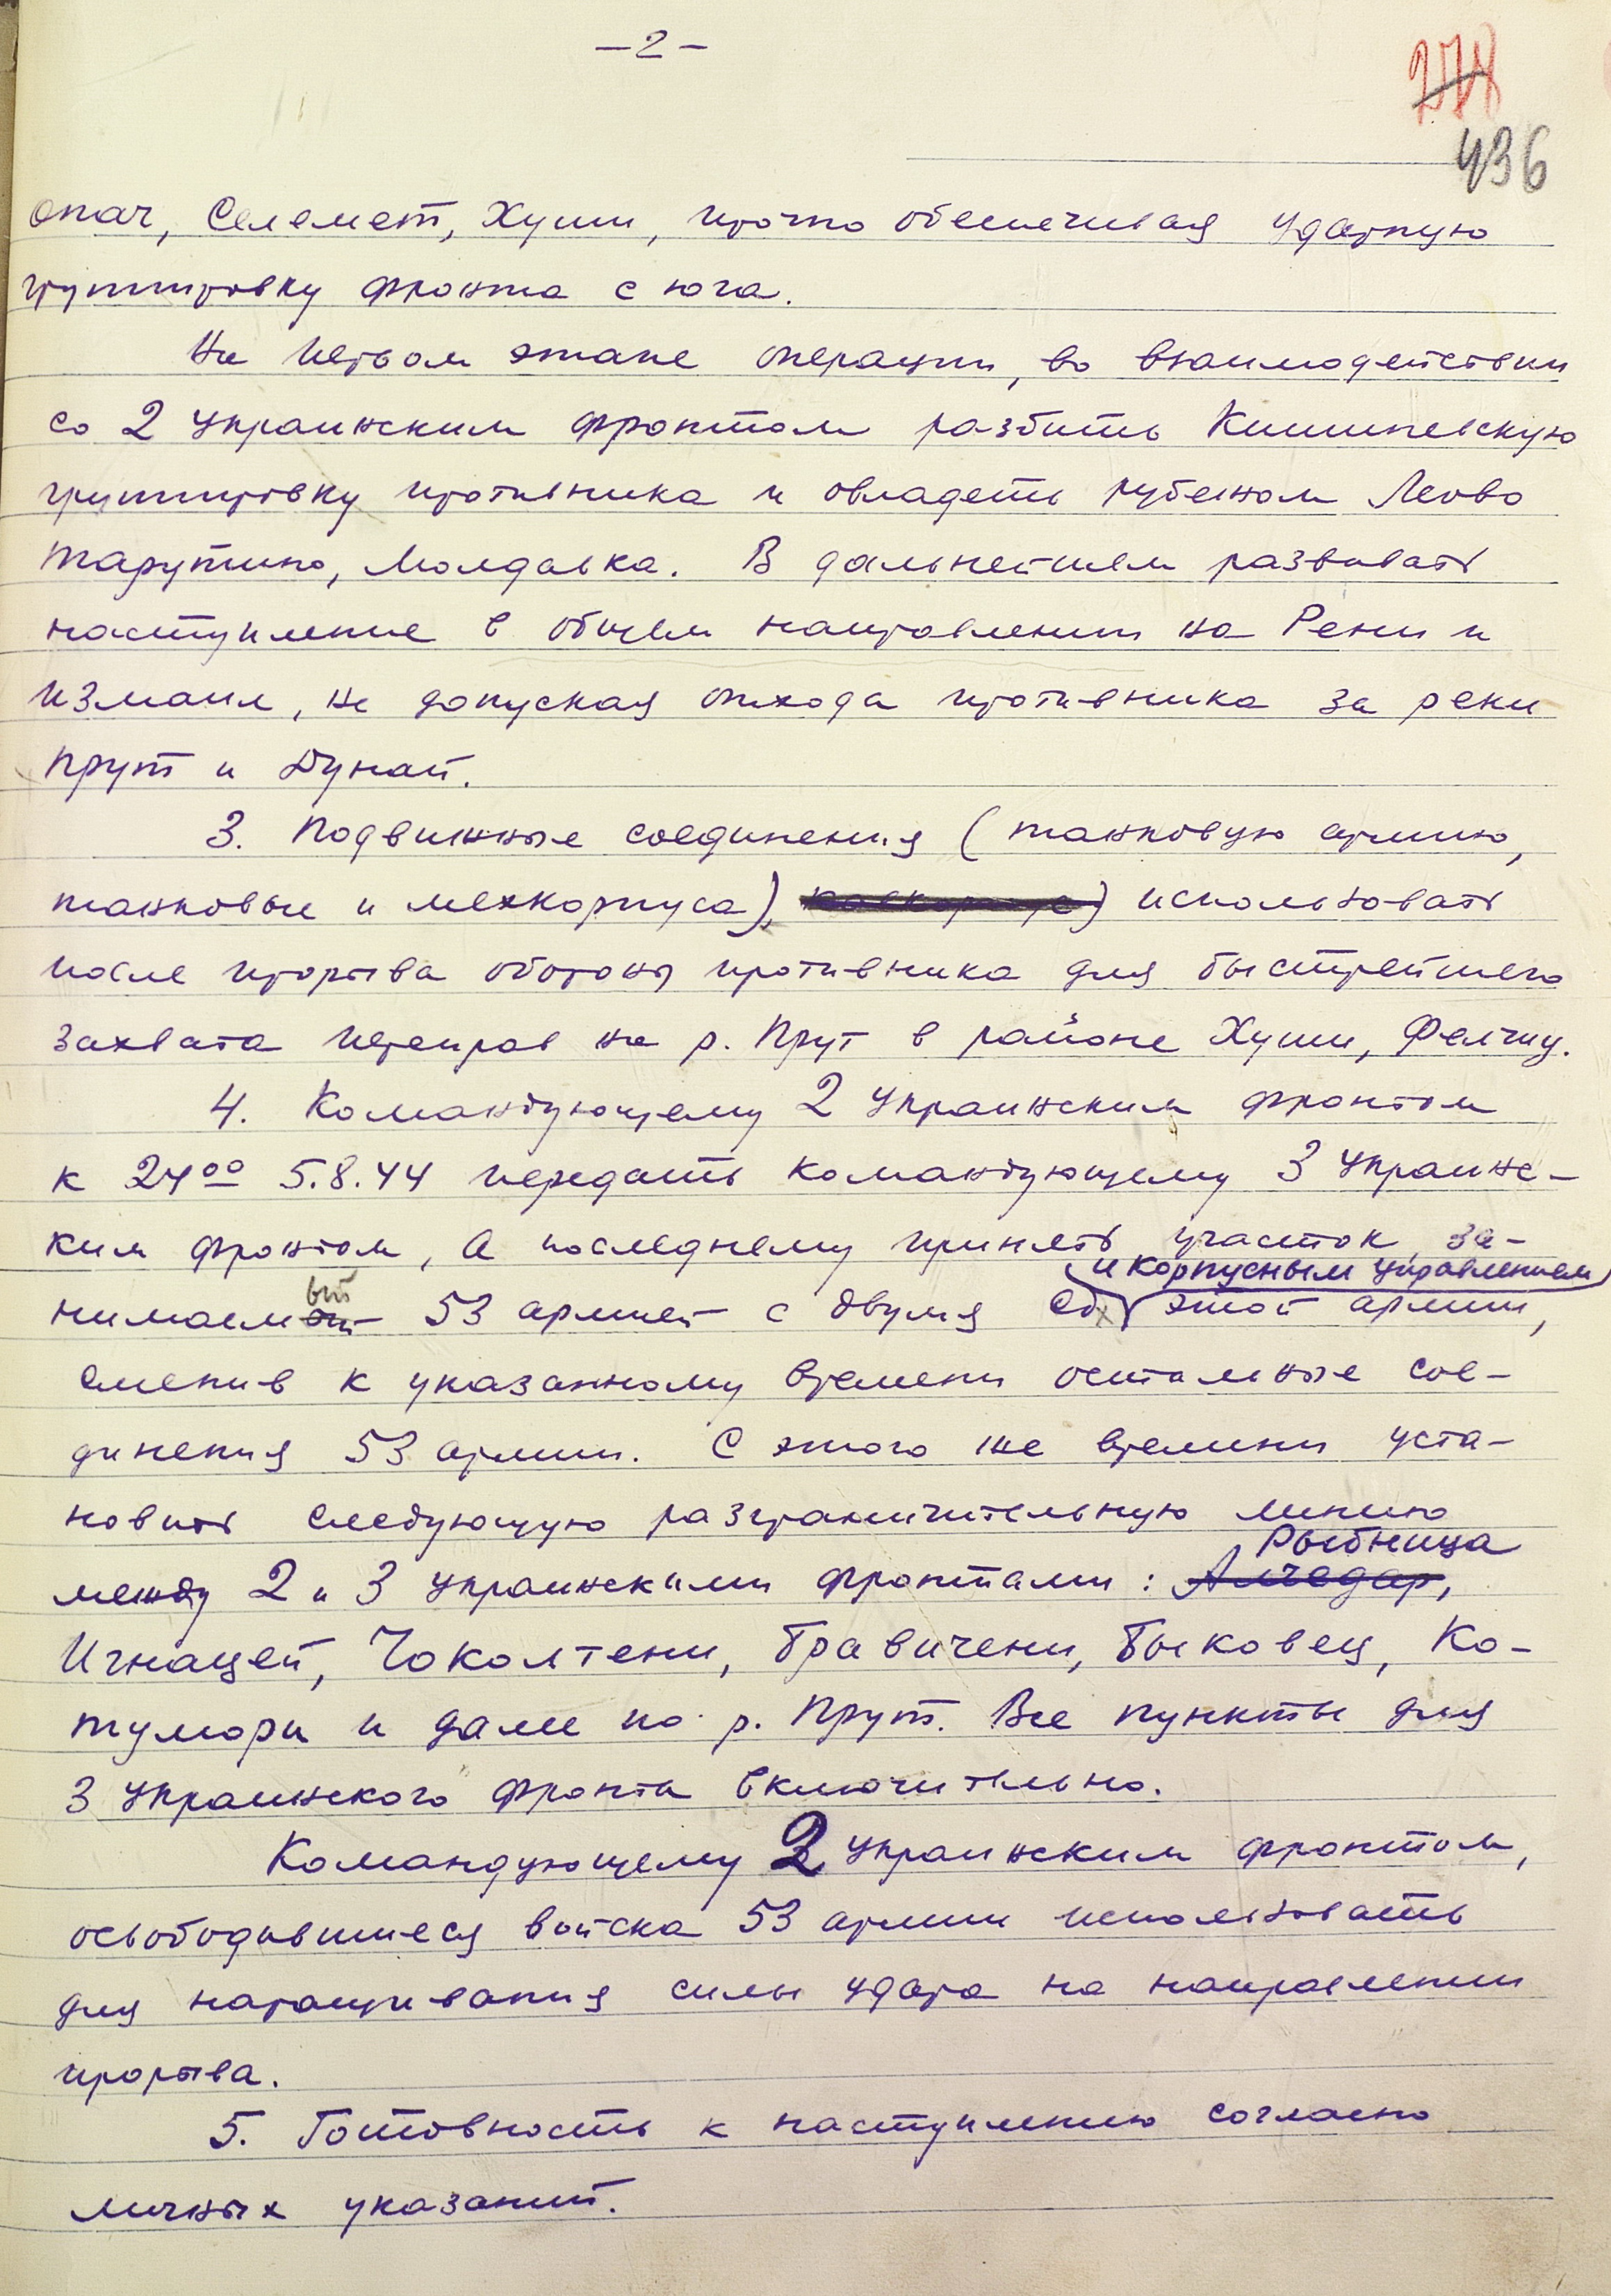 — 2 —
278
436
опач, Селемет, Хуши, прочно обеспечивая ударную
группировку фронта с юга.
На первом этапе операции, во взаимодействии
со 2 Украинским фронтом разбить Кишиневскую
группировку противника и овладеть рубежом Леово
Тарутино, Молдавка. В дальнейшем развивать
наступление в общем направлении на Рени и
Измаил, не допуская отхода противника за реки
Прут и Дунай.
3. Подвижные соединения (танковую армию,
танковые и мехкорпуса), использовать
после прорыва обороны противника для быстрейшего
захвата переправ на р. Прут в районе Хуши, Фелчиу.
4. Командующему 2 Украинским фронтом
к 24⁰⁰ 5.8.44 передать командующему 3 Украинс-
ким фронтом, а последнему принять участок, за-
и корпусным управлением
нимаемый 53 армией с двумя сд этой армии,
сменив к указанному времени остальные сое-
динения 53 армии. С этого же времени уста-
новить следующую разграничительную линию
Рыбница
между 2 и 3 Украинскими фронтами: Алчедар,
Игнацей, Чоколтени, Бравичени, Быковец, Ко-
тумори и далее по р. Прут. Все пункты для
3 Украинского фронта включительно.
Командующему 2 Украинским фронтом,
освободившиеся войска 53 армии использовать
для наращивания силы удара на направлении
прорыва.
5. Готовность к наступлению согласно
личных указаний.